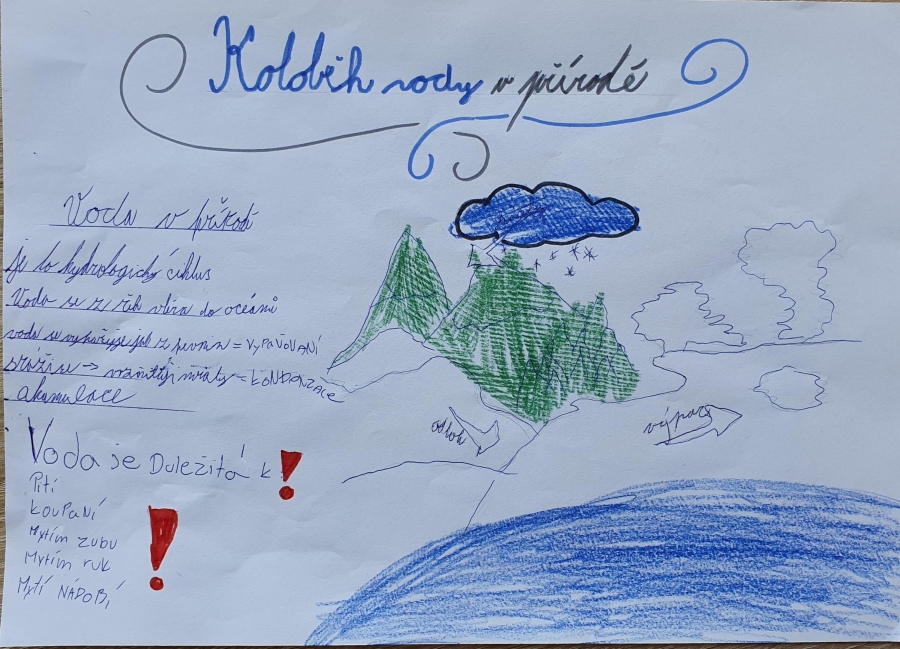 Koloběh vody v přírodě
Voda v příkodě
je to hydrologický ciklus
Voda se z řek vlévá do oceánů
voda se vypařuje jak z pevnin = VYPAŘOVANÍ
sráží se → vznikají mraky = KONDENZACE
akumulace
Voda je Duležitá k
Pití
KOUPANÍ
Mytím zubu
Mytím ruk
Mytí NÁDOBÍ
odtok
výpar